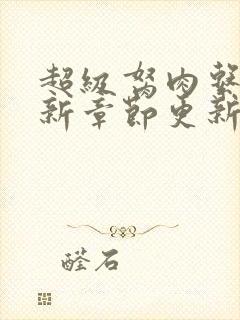 超級胬肉系
新章節更新
醛石